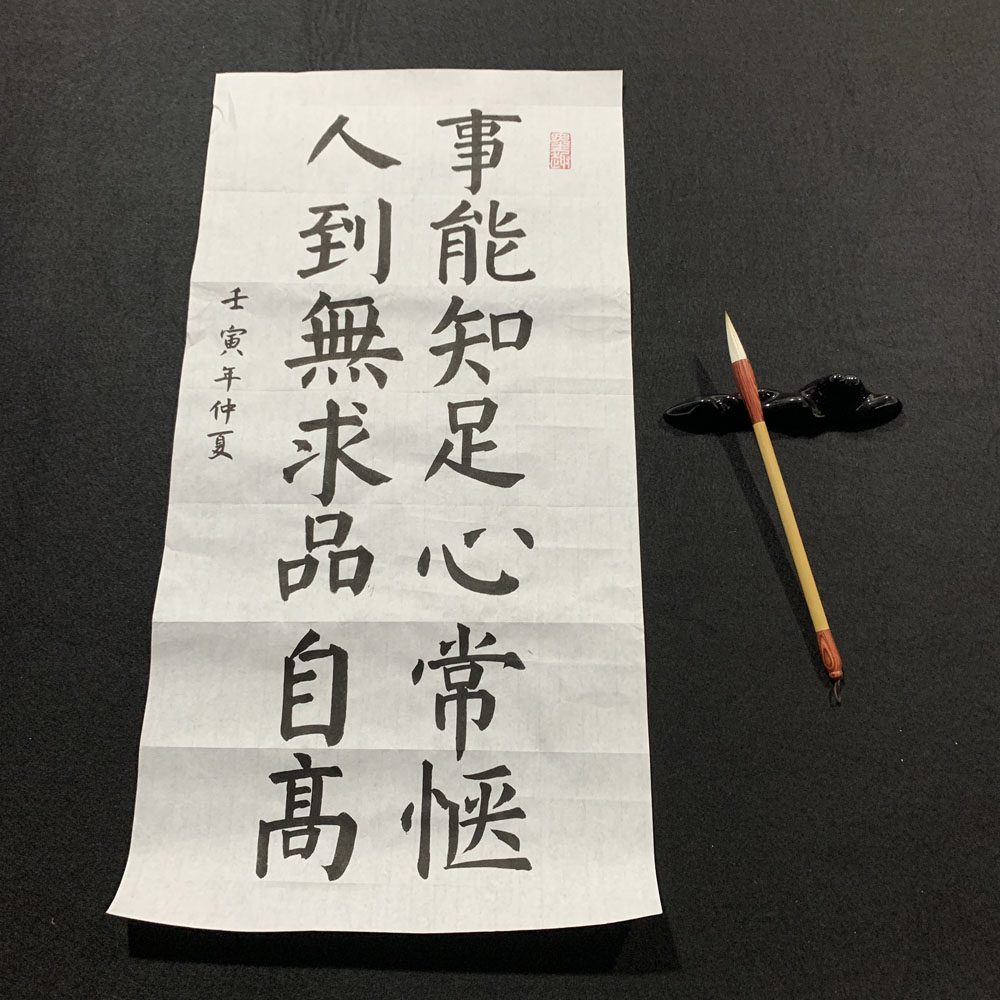 事能知足心常惬
人到無求品自髙
壬寅年仲夏